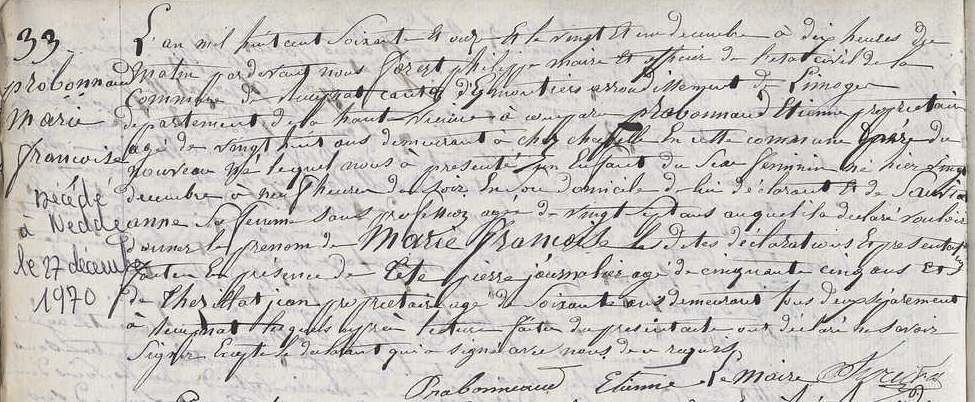 33
probonnaud
Marie
francoise
Décédé
à Nedde
le 27 decembre
1970
L'an mil huit cent soixante et onze et le vingt et un decembre à dix heures de
matin par devant nous philippe maire et officier de l'etat civil de la
Commune de canton d'eymoutiers arrondissement de Limoges
departement de la haute vienne à comparu probonnaud Etienne propriétaire
agé de vingt huit ans demeurant à chez en cette commune père du
nouveau né lequel nous à presenté un Enfant du Sexe feminin né hier vingt
decembre à neuf heures du soir En son domicile de lui déclarant et de
anne sa femme sans profession agée de vingt sept ans auquel il a déclaré vouloir
donner le prenom de Marie Francoise les dites déclarations Et presentation
faites En présence de pierre journalier agé de cinquante cinq ans et
de jean propriétaire agé de Soixante ans demeurant tous deux séparement
à lesquels après lecture faites du present acte ont déclaré ne savoir
Signer Excepté le déclarant qui a signé avec nous de ce requis
Probonneaud Etienne Le Maire